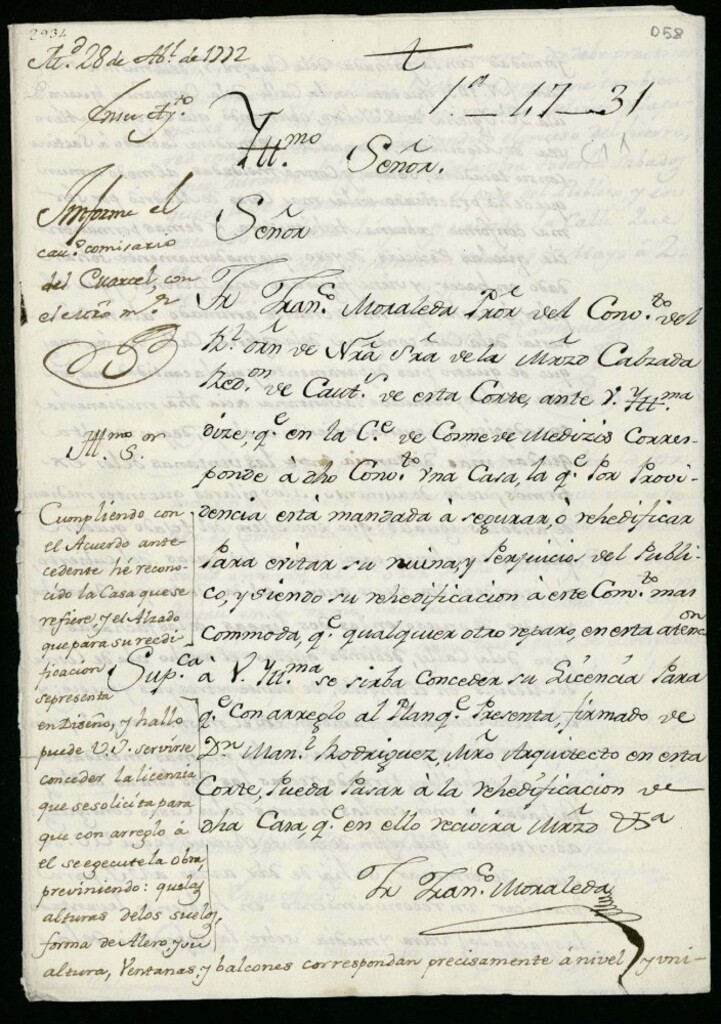 2934
058
M.d 28 de Abl. de 1772
1a_47_31
Yll.mo Señor.
Informe el
cav.o comisario
del Cuarcel, con
el
Señor
Fr. Fran.co Moraleda Pror. del Conv.to del
Rl. orn. de Nra. Sra. de la Mrzd. Calzada
Red.on de Caut.s de esta Corte, ante V. Yll.ma
dize, q.e en la C.e de Cosme de Medizis Corres-
ponde à dho Conv.to vna Casa, la q.e Por Provi-
dencia está mandada à segurar, ò rehedificar
Para evitar su ruina, y Perjuicios del Publi-
co, y siendo su rehedificacion à este Conv.to mas
Commoda, q.e qualquier otro reparo, en esta atencon
Sup.ca à V. Yll.ma se sirba Conceder su Licencia Para
q.e Con arreglo al Plan q.e Presenta, firmado de
Dn. Man.l Rodriguez, Mro. Arquitecto en esta
Corte, Pueda Pasar à la rehedificacion de
dha Casa, q.e en ello recivira Mrzd. &a
Fr. Fran.co Moraleda
Yll.mo S.or
Cumpliendo con
el Acuerdo ante
cedente hé recono-
cido la Casa que se
refiere, y el Alzado
que para su reedi-
ficacion
se presenta
en Diseño, y hallo
puede V.Y. servirse
conceder la licenzia
que se solicita para
que con arreglo à
el se egecute la obra,
previniendo: que las
alturas de los suelos,
forma de Alero, y su
altura, Ventanas, y balcones correspondan precisamente à nivel, y uni-